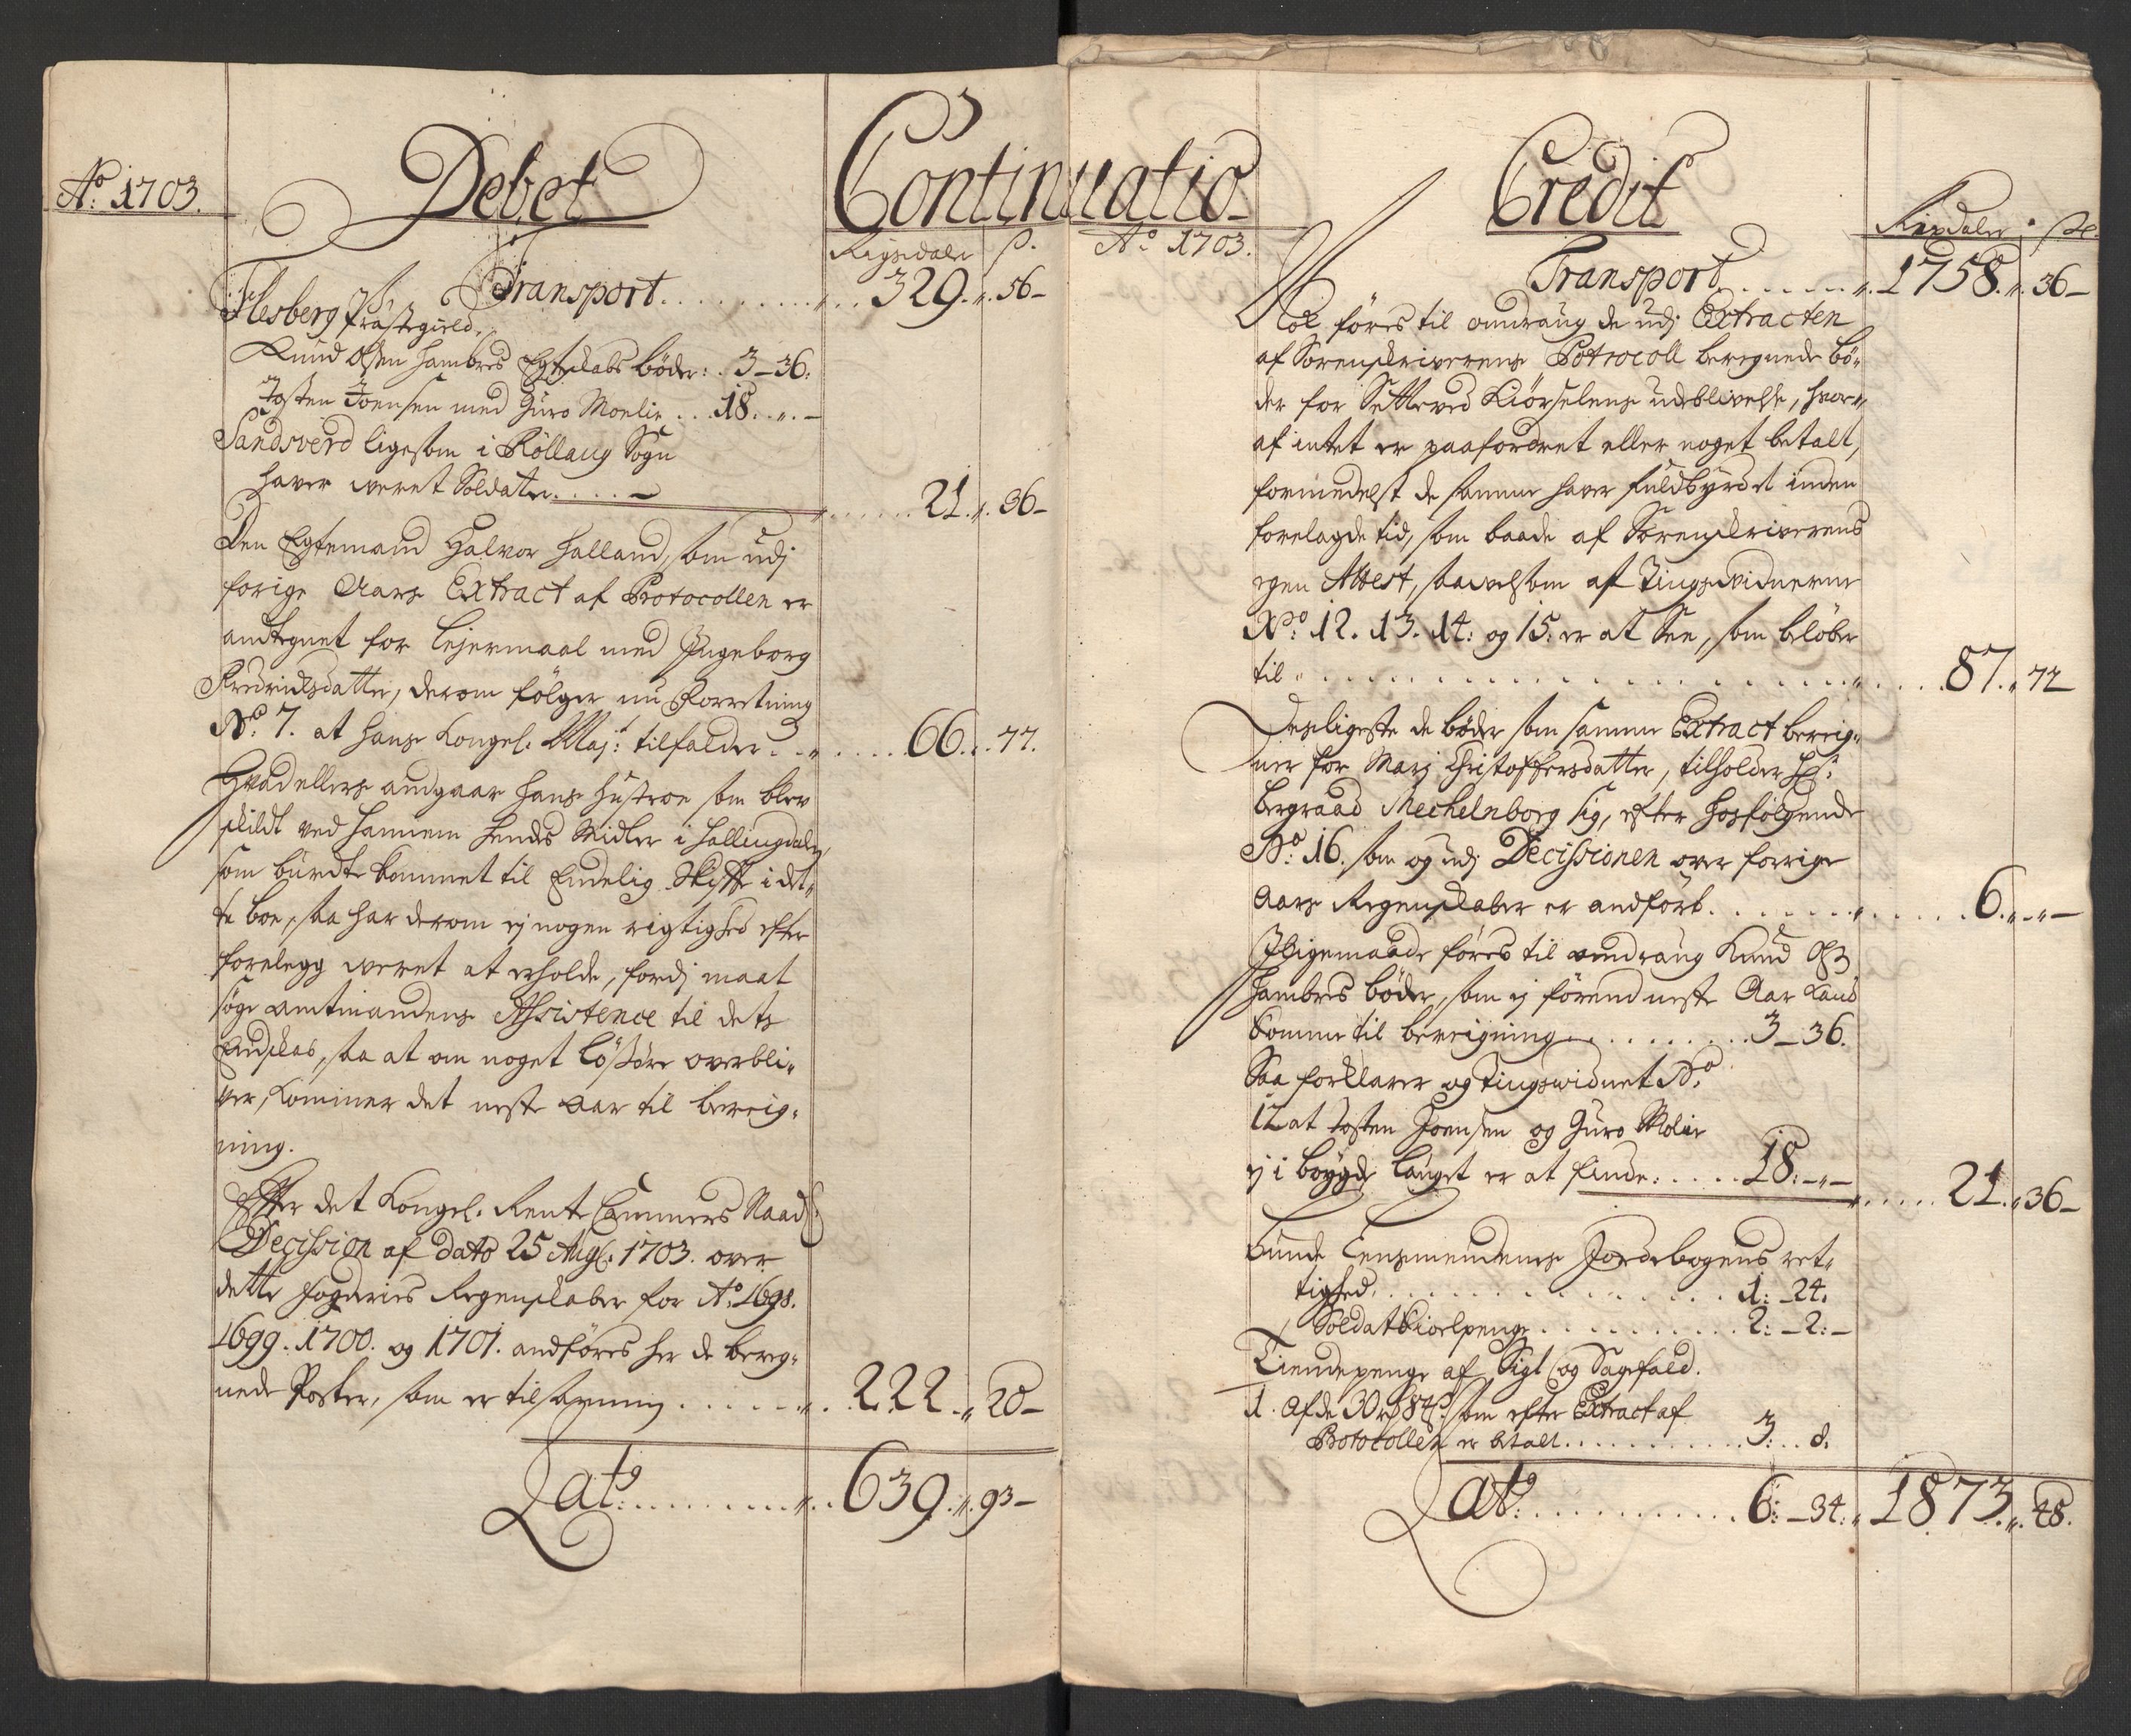 Ao: 1703.
Debet
Continuatio
Rigsdaler ß.
Transport . . . . . . . . 329. 56-
Flesberg Præstegield.
Knud Olsen Hambres Egteskabs bøder: . 3-36:
Tosten Joensen med Guro Moelie . . . 18. „. -
Sandsverd ligesom i Rollaug Sogn
haver weret Soldater. . . . . - . . . . . . 21. „. 36-
Den Egtemand Halvor Halland, som udj
forige Aars Extract af Protocollen er
andtegnet for Lejermaal med Ingeborg
Fredrichsdatter, derom følger nu Forretning
No: 7. at Hans Kongel. Maj:t tilfalder . . „ . . . . . 66. . . 77.
Hvad ellers andgaar hans Hustroe som blev
skildt ved hannem hendes Midler i Hallingdalen,
som burdte kommet til Endelig Skiffte i det-
te boe, saa har derom ej nogen rigtighed efter
forelegg weret at erholde, fordj maat
søge amtmandens Assistence til dets
Endskab, saa at om noget Løssøre overbli-
ver, kommer det neste Aar til bereig-
ning.
Effter det Kongel. Rente Cammers Naad:
Decission af dato 25 Aug: 1703. over
dette fogderies Regenskaber for Ao: 1698.
1699. 1700. og 1701. andføres her de bereg-
nede Poster, som er tilsammen . . . . . . „. . 222 „ 20-
Lat: . . . . . . . . . „. . 639. „. 93-
Ao 1703.
Credit
Rixdaler: ß.
Transport . . . . . . „. 1758. „. 36-
Nok føres til omdraug de udj Extracten
af Sorenskriverens Potrocoll beregnede bø-
der for Setteved Kiørselens udeblivelse, hvor-
af intet er paafordret eller noget betalt,
formedelst de samme haver fuldbyrdet inden
forelagde tid, som baade af Sorenskriverens
egen Attest, saavelsom af Tingsvidnerne
No: 12. 13. 14: og 15: er at See, som beløber
til . . . . . . . . . . . . . . . . . . . . . . 87. „ 72
Desligeste de bøder som samme Extract bereig-
ner for Marj Christoffersdatter, tilholder Hr:
Bergraad Mechelnborg sig, efter hosfølgende
No: 16. som og udj Decissionen over forrige
Aars Regenskaber er andført . . . . . . . „ . . . . . 6. „ „ -
I Ligemaade føres til omdraug Knud Ols:
Hambres bøder, som ej førend neste Aar kand
komme til bereigning . . . . . . . . . 3-36.
Saa forklarer og Tingswidnet No:
12 at Tosten Joensen og Guro Molie
ej i bøygde lauget er at finde: . . . . . 18: - „ - . . . . . 21. „ 36-
Bunde Lensmendenes Jordebogens ret-
tighed. . . . . . . . . . . . . . . . . . 1: -24.
Soldat Kioelpenge . . . . . . . . . . . 2: - 2: -
Tiendepenge af Sigt og Sagefald.
1. Af de 30 rd 87 ß som efter Extract af
Protocollen er betalt . . . . . . . . . . . 3: . . 8.
Lat: . . . . . . . . . . . . 6: -34. „ 1873. „. 48.